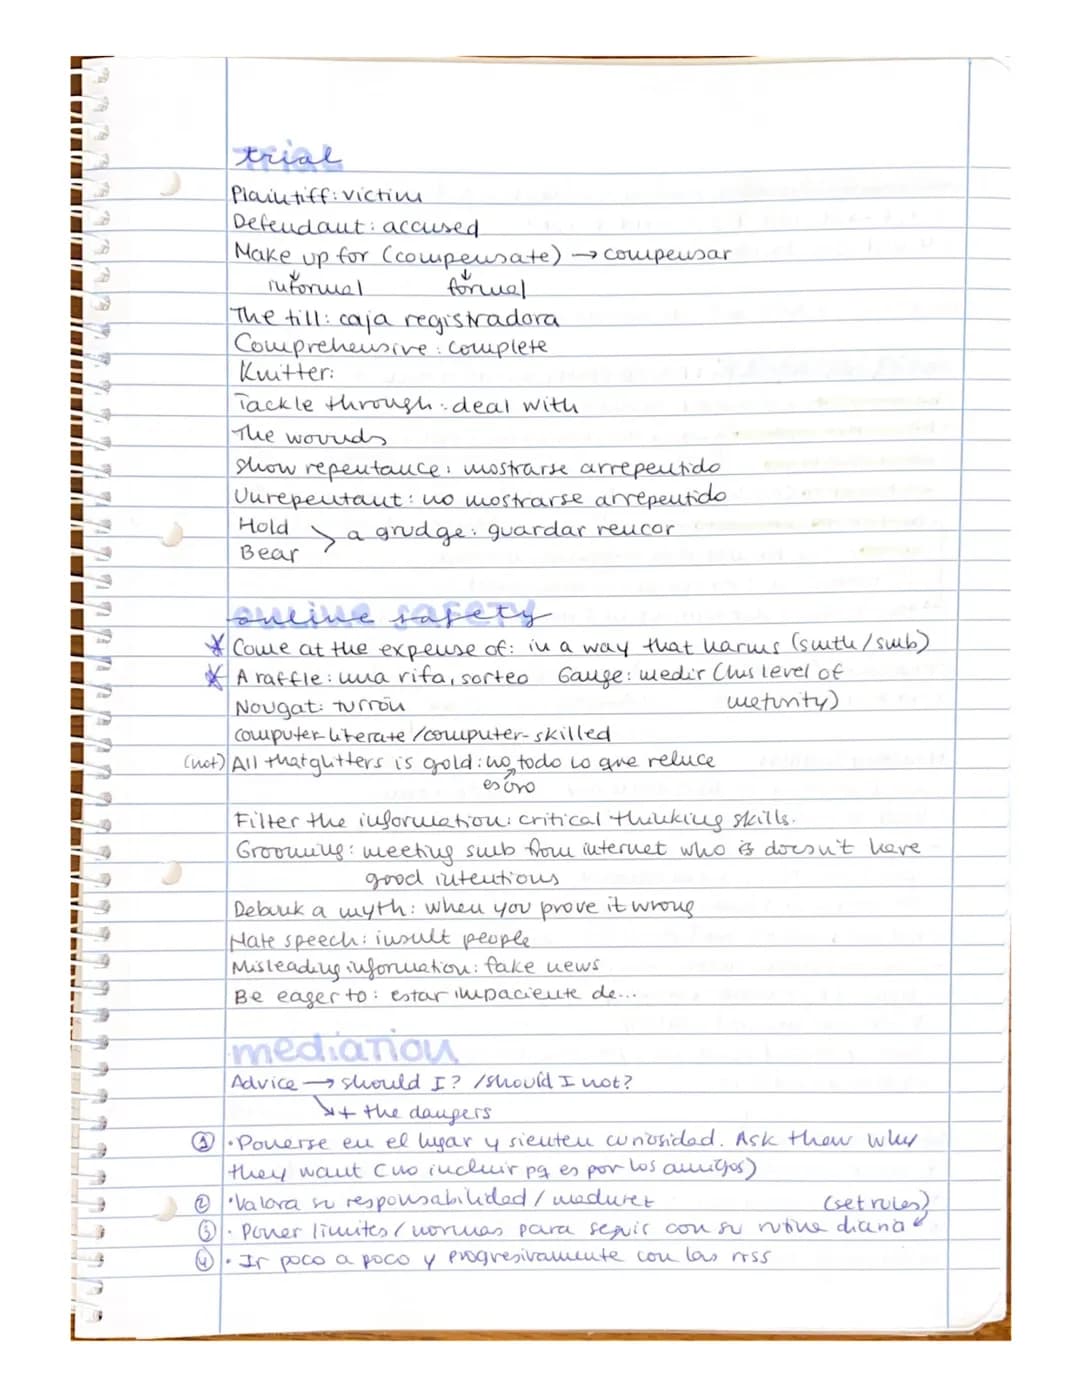 trial
Plaintiff: victim
Defendant: accused
Make up for (compensate) → compensar
informal formal
The till: caja registradora
Comprehensive: complete
Knitter:
Tackle through: deal with
The wounds
Show repentance: mostrarse arrepentido
Unrepentant: no mostrarse arrepentido
Hold
Bear > a grudge: guardar rencor
online safety
* Come at the expense of: in a way that harms (smth/smb)
* A raffle: una rifa, sorteo Gauge: medir (his level of
maturity)
Nougat: turrón
computer-literate/computer-skilled
(not) All that glitters is gold: no todo lo que reluce
es oro
Filter the information: critical thinking skills.
Grooming: meeting smb from internet who is doesn't have
good intentions
Debunk a myth: when you prove it wrong
Hate speech: insult people
Misleading information: fake news
Be eager to: estar impaciente de...
mediation
Advice → should I? /should I not?
↘ + the dangers
① • Ponerse en el lugar y sienten curiosidad. Ask them why
they want (no incluir pq es por los amigos)
② • Valora su responsabilidad/madurez (set rules)
③ • Poner límites/normas para seguir con su rutina diaria
④ • Ir poco a poco y progresivamente con las rrss